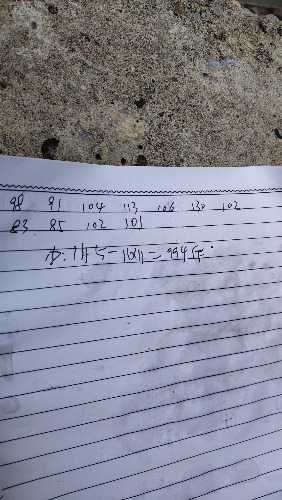 98 91 104 113 106 130 102
83 85 102 101
= 994斤